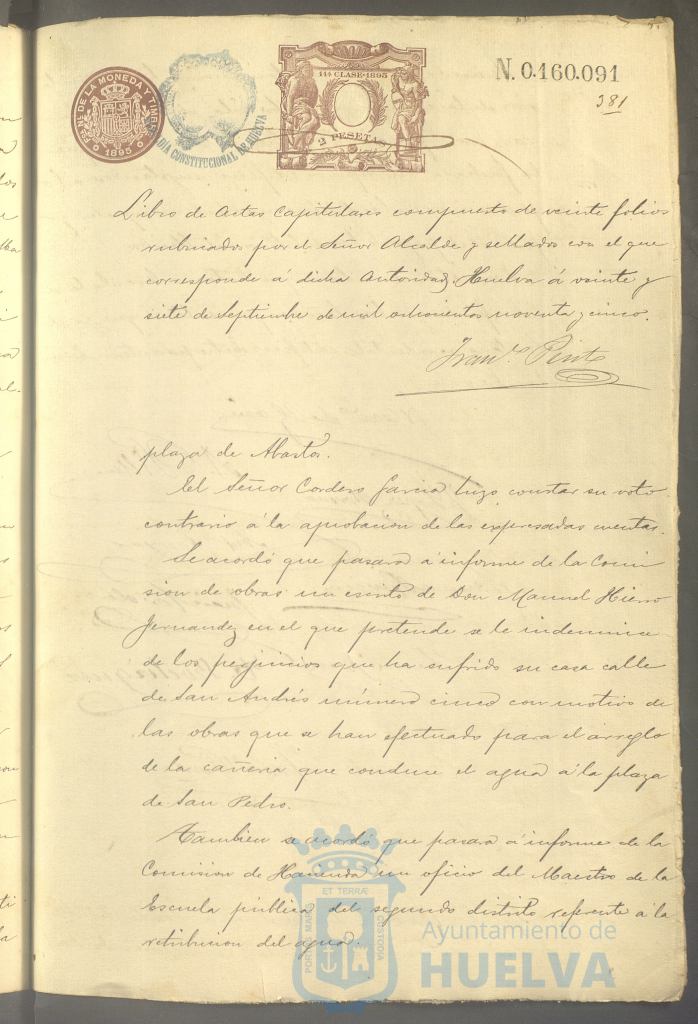 Nal. DE LA MONEDA Y TIMBRE
1895
ALCALDIA CONSTITUCIONAL DE HUELVA
11ª CLASE·1895
2 PESETAS
N.0.160.091
381
Libro de Actas Capitulares compuesto de veinte folios
rubricados por el Señor Alcalde y sellados con el que
corresponde á dicha Autoridad, Huelva á veinte y
siete de Septiembre de mil ochocientos noventa y cinco.
Franco. Pinto
plaza de Abastos.
El Señor Cordero Garcia hizo constar su voto
contrario á la aprobacion de las expresadas cuentas.
Se acordó que pasara á informe de la Comi
sion de obras un escrito de Don Manuel Hierro
Fernandez en el que pretende se le indemnice
de los perjuicios que ha sufrido su casa calle
de San Andrés número cinco con motivo de
las obras que se han efectuado para el arreglo
de la cañeria que conduce el agua á la plaza
de San Pedro.
Tambien se acordó que pasara á informe de la
Comision de Hacienda un oficio del Maestro de la
Escuela pública del segundo distrito referente á la
retribucion del agua.
PORTUS MARIS ET TERRÆ CUSTODIA
Ayuntamiento de
HUELVA